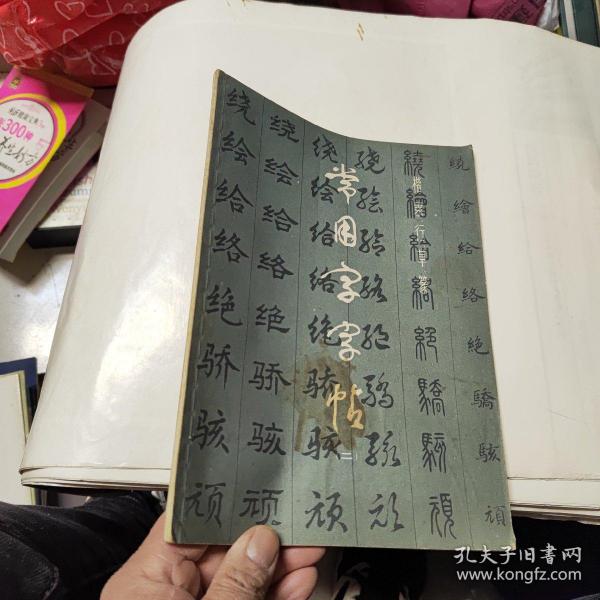 常用字字帖
二
楷隶行草篆
绕绘给络绝骄骇顽
绕绘给络绝骄骇顽
绕绘给络绝骄骇顽
绕绘给络绝骄骇顽
繞繪給絡絕驕駭頑
繞繪給絡絶驕駭頑
300种
孔夫子旧书网
www.kongfz.com